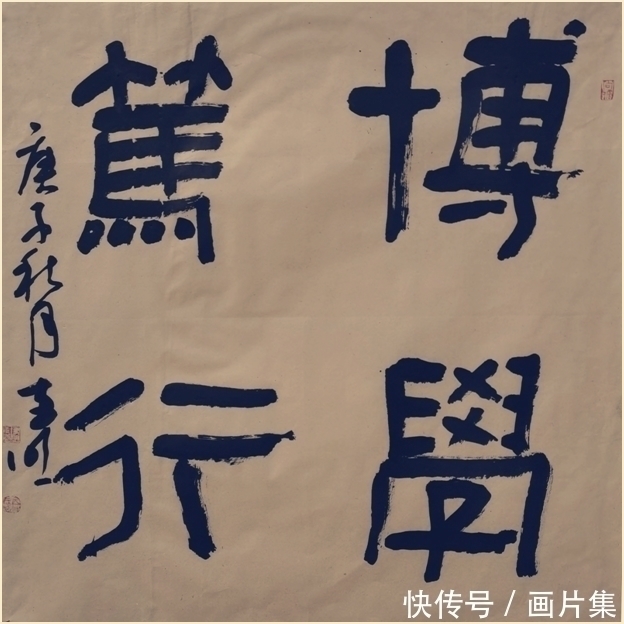 博學
篤行
庚子秋月
快传号 / 画片集